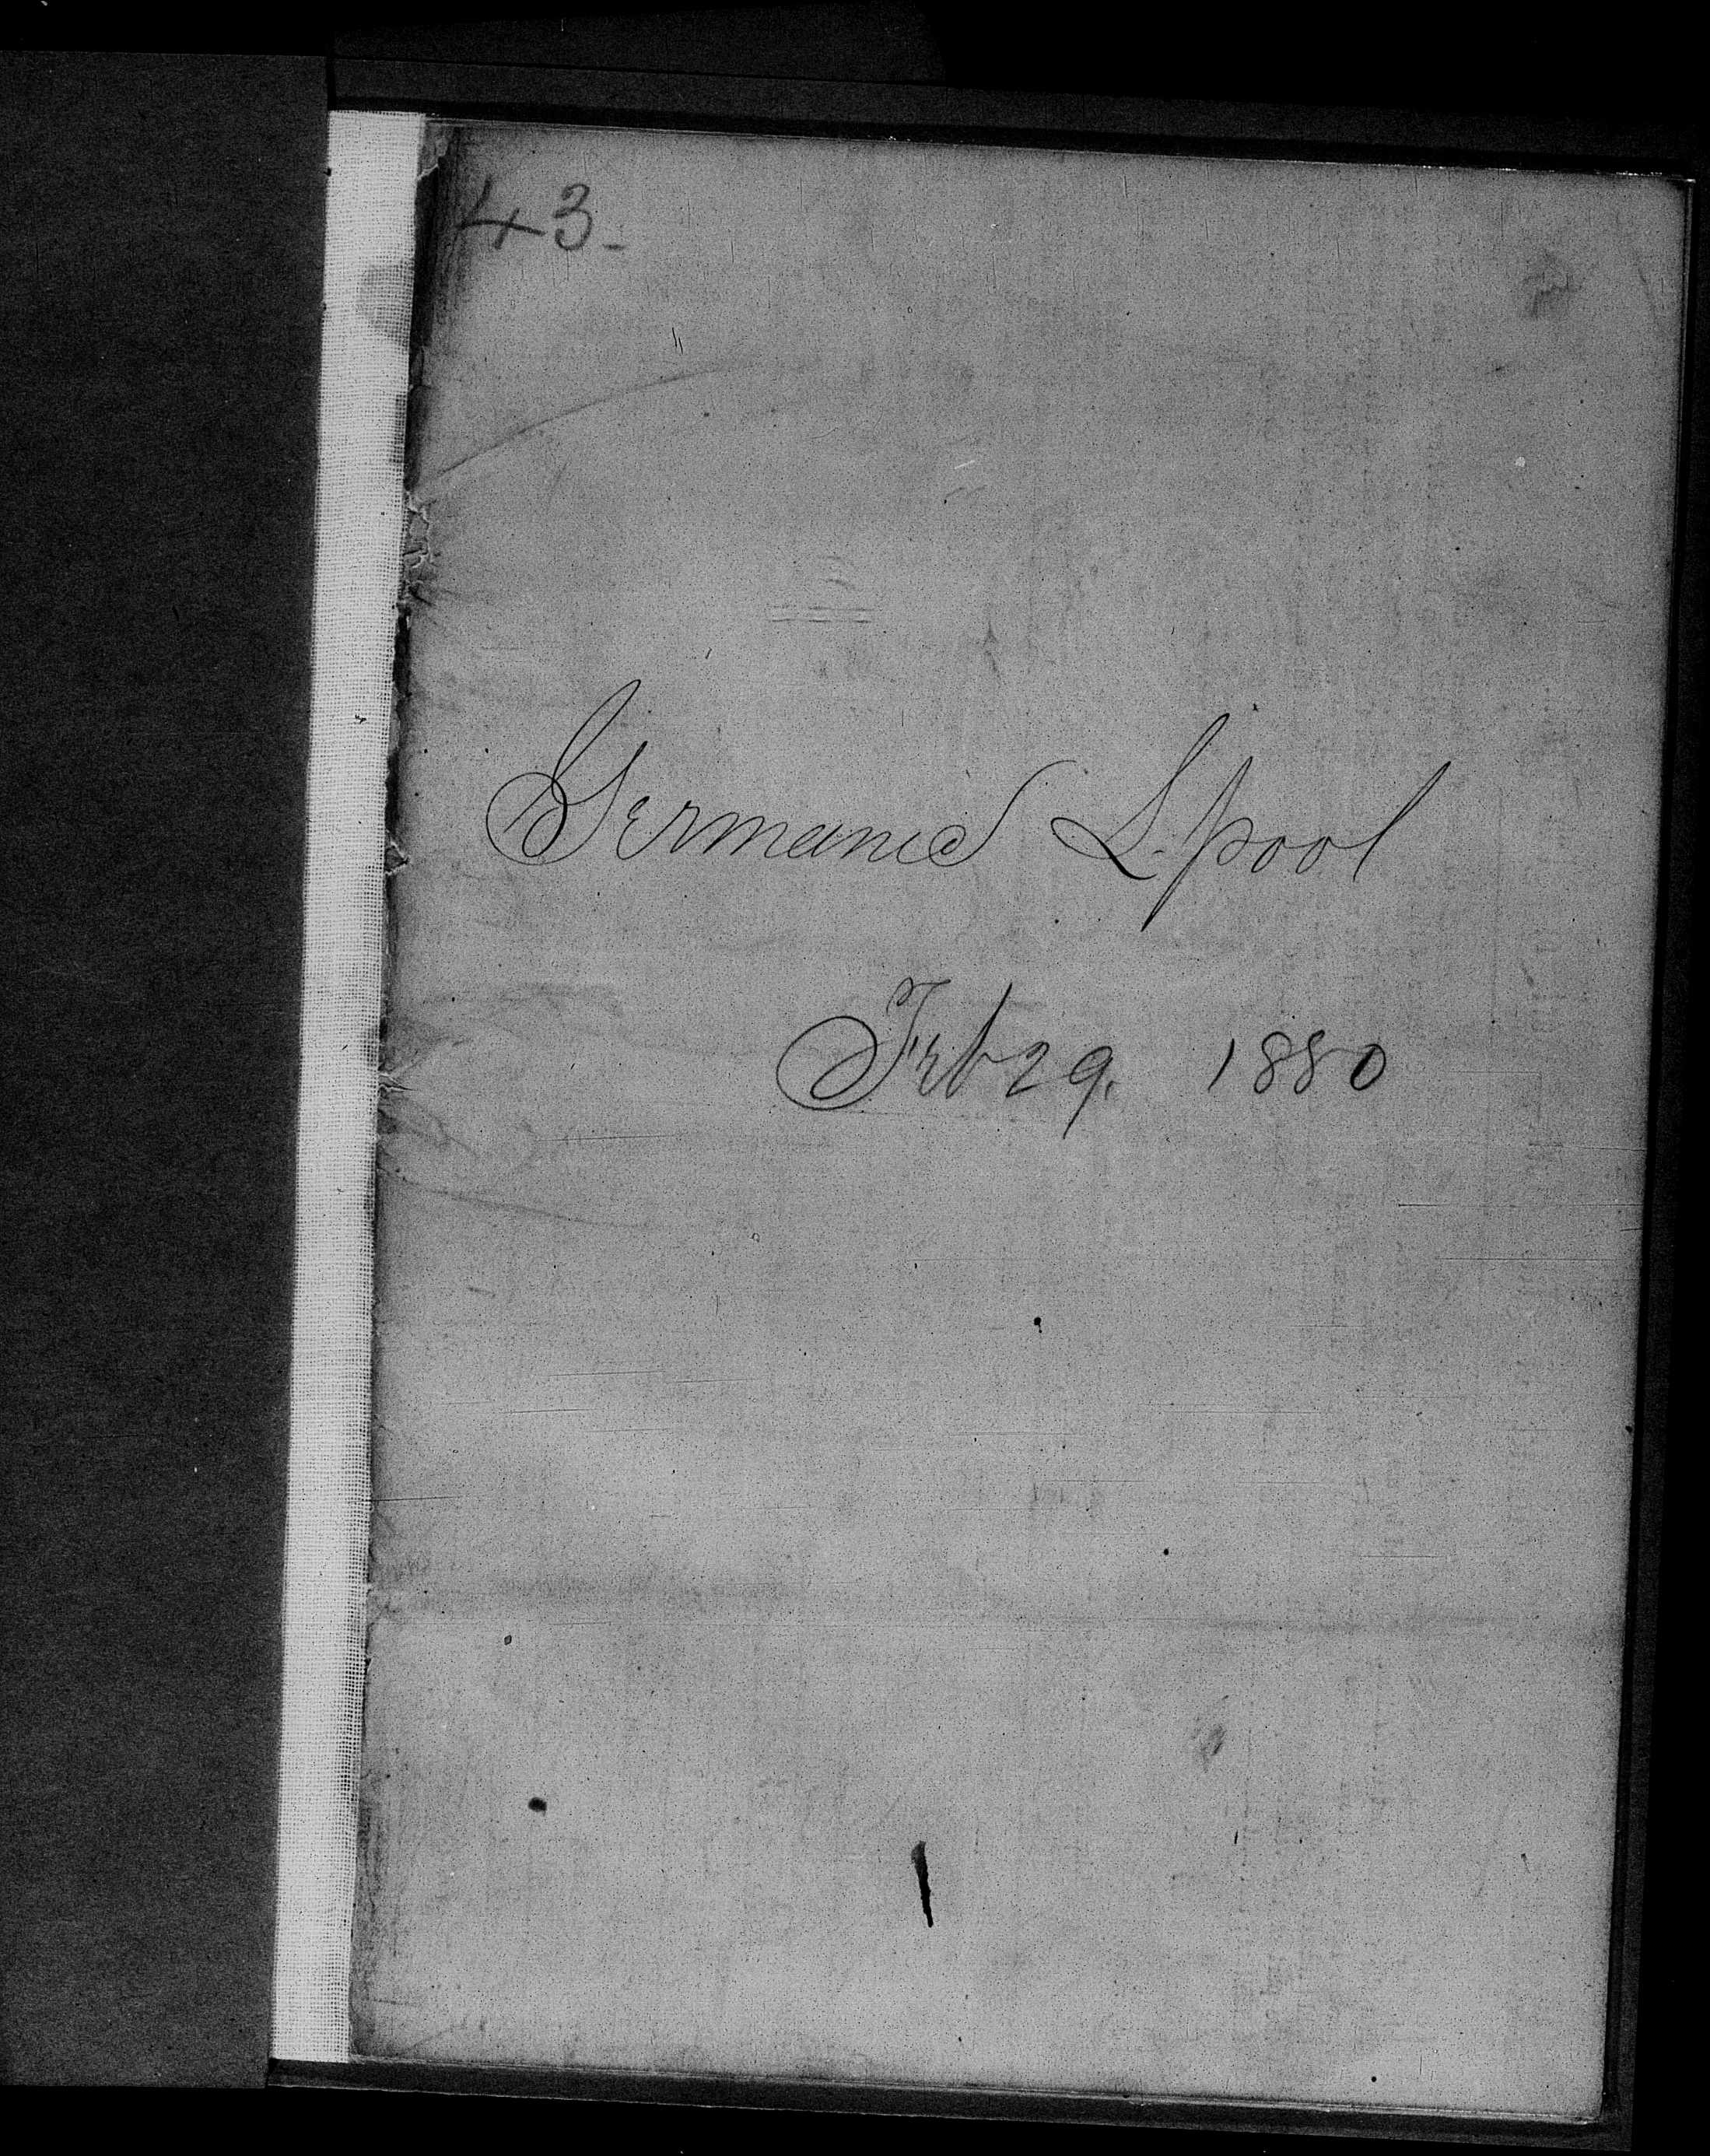 43-
Germanic L.pool
Feb 29. 1880